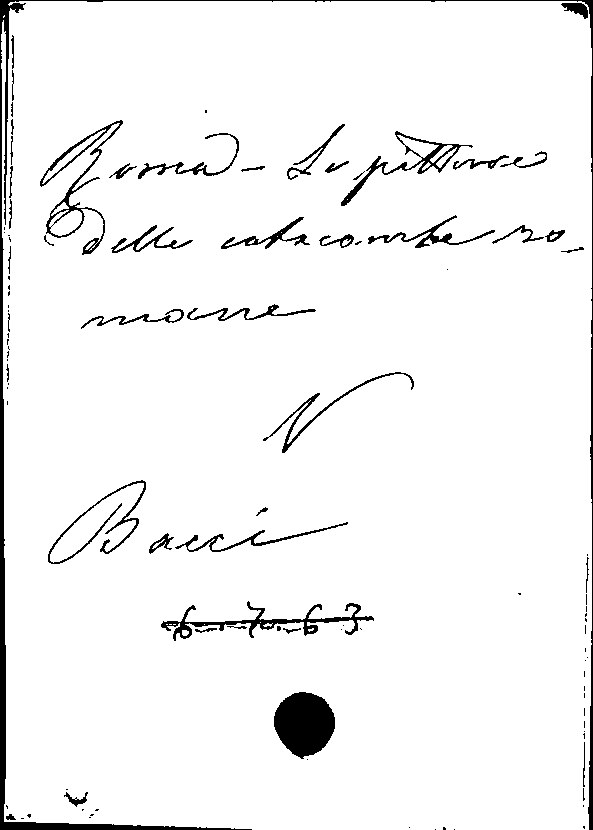 Roma - Le pitture
delle catacombe ro-
mane
V
Bacci
6.7.63